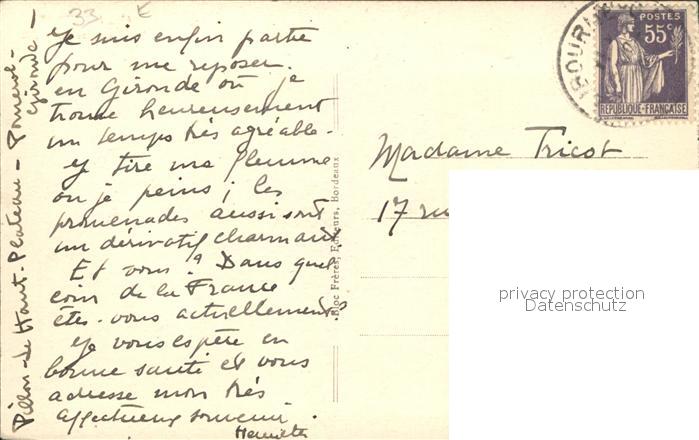 33 E
Je suis enfin partie
pour me reposer
en Gironde où je
trouve heureusement
un temps très agréable.
Je tire ma
ou je peins ; les
promenades aussi sont
un dérivatif charmant
Et vous ? Dans quel
coin de la France
êtes-vous actuellement
Je vous espère en
bonne santé et vous
adresse mon très
affectueux souvenir.
Henriette
Haut-Plateau - Pomerol -
Gironde -
Bloc Frères, Editeurs, Bordeaux
LIBOURNE
POSTES
55c
REPUBLIQUE-FRANÇAISE
Madame Tricot
17 ru
privacy protection
Datenschutz